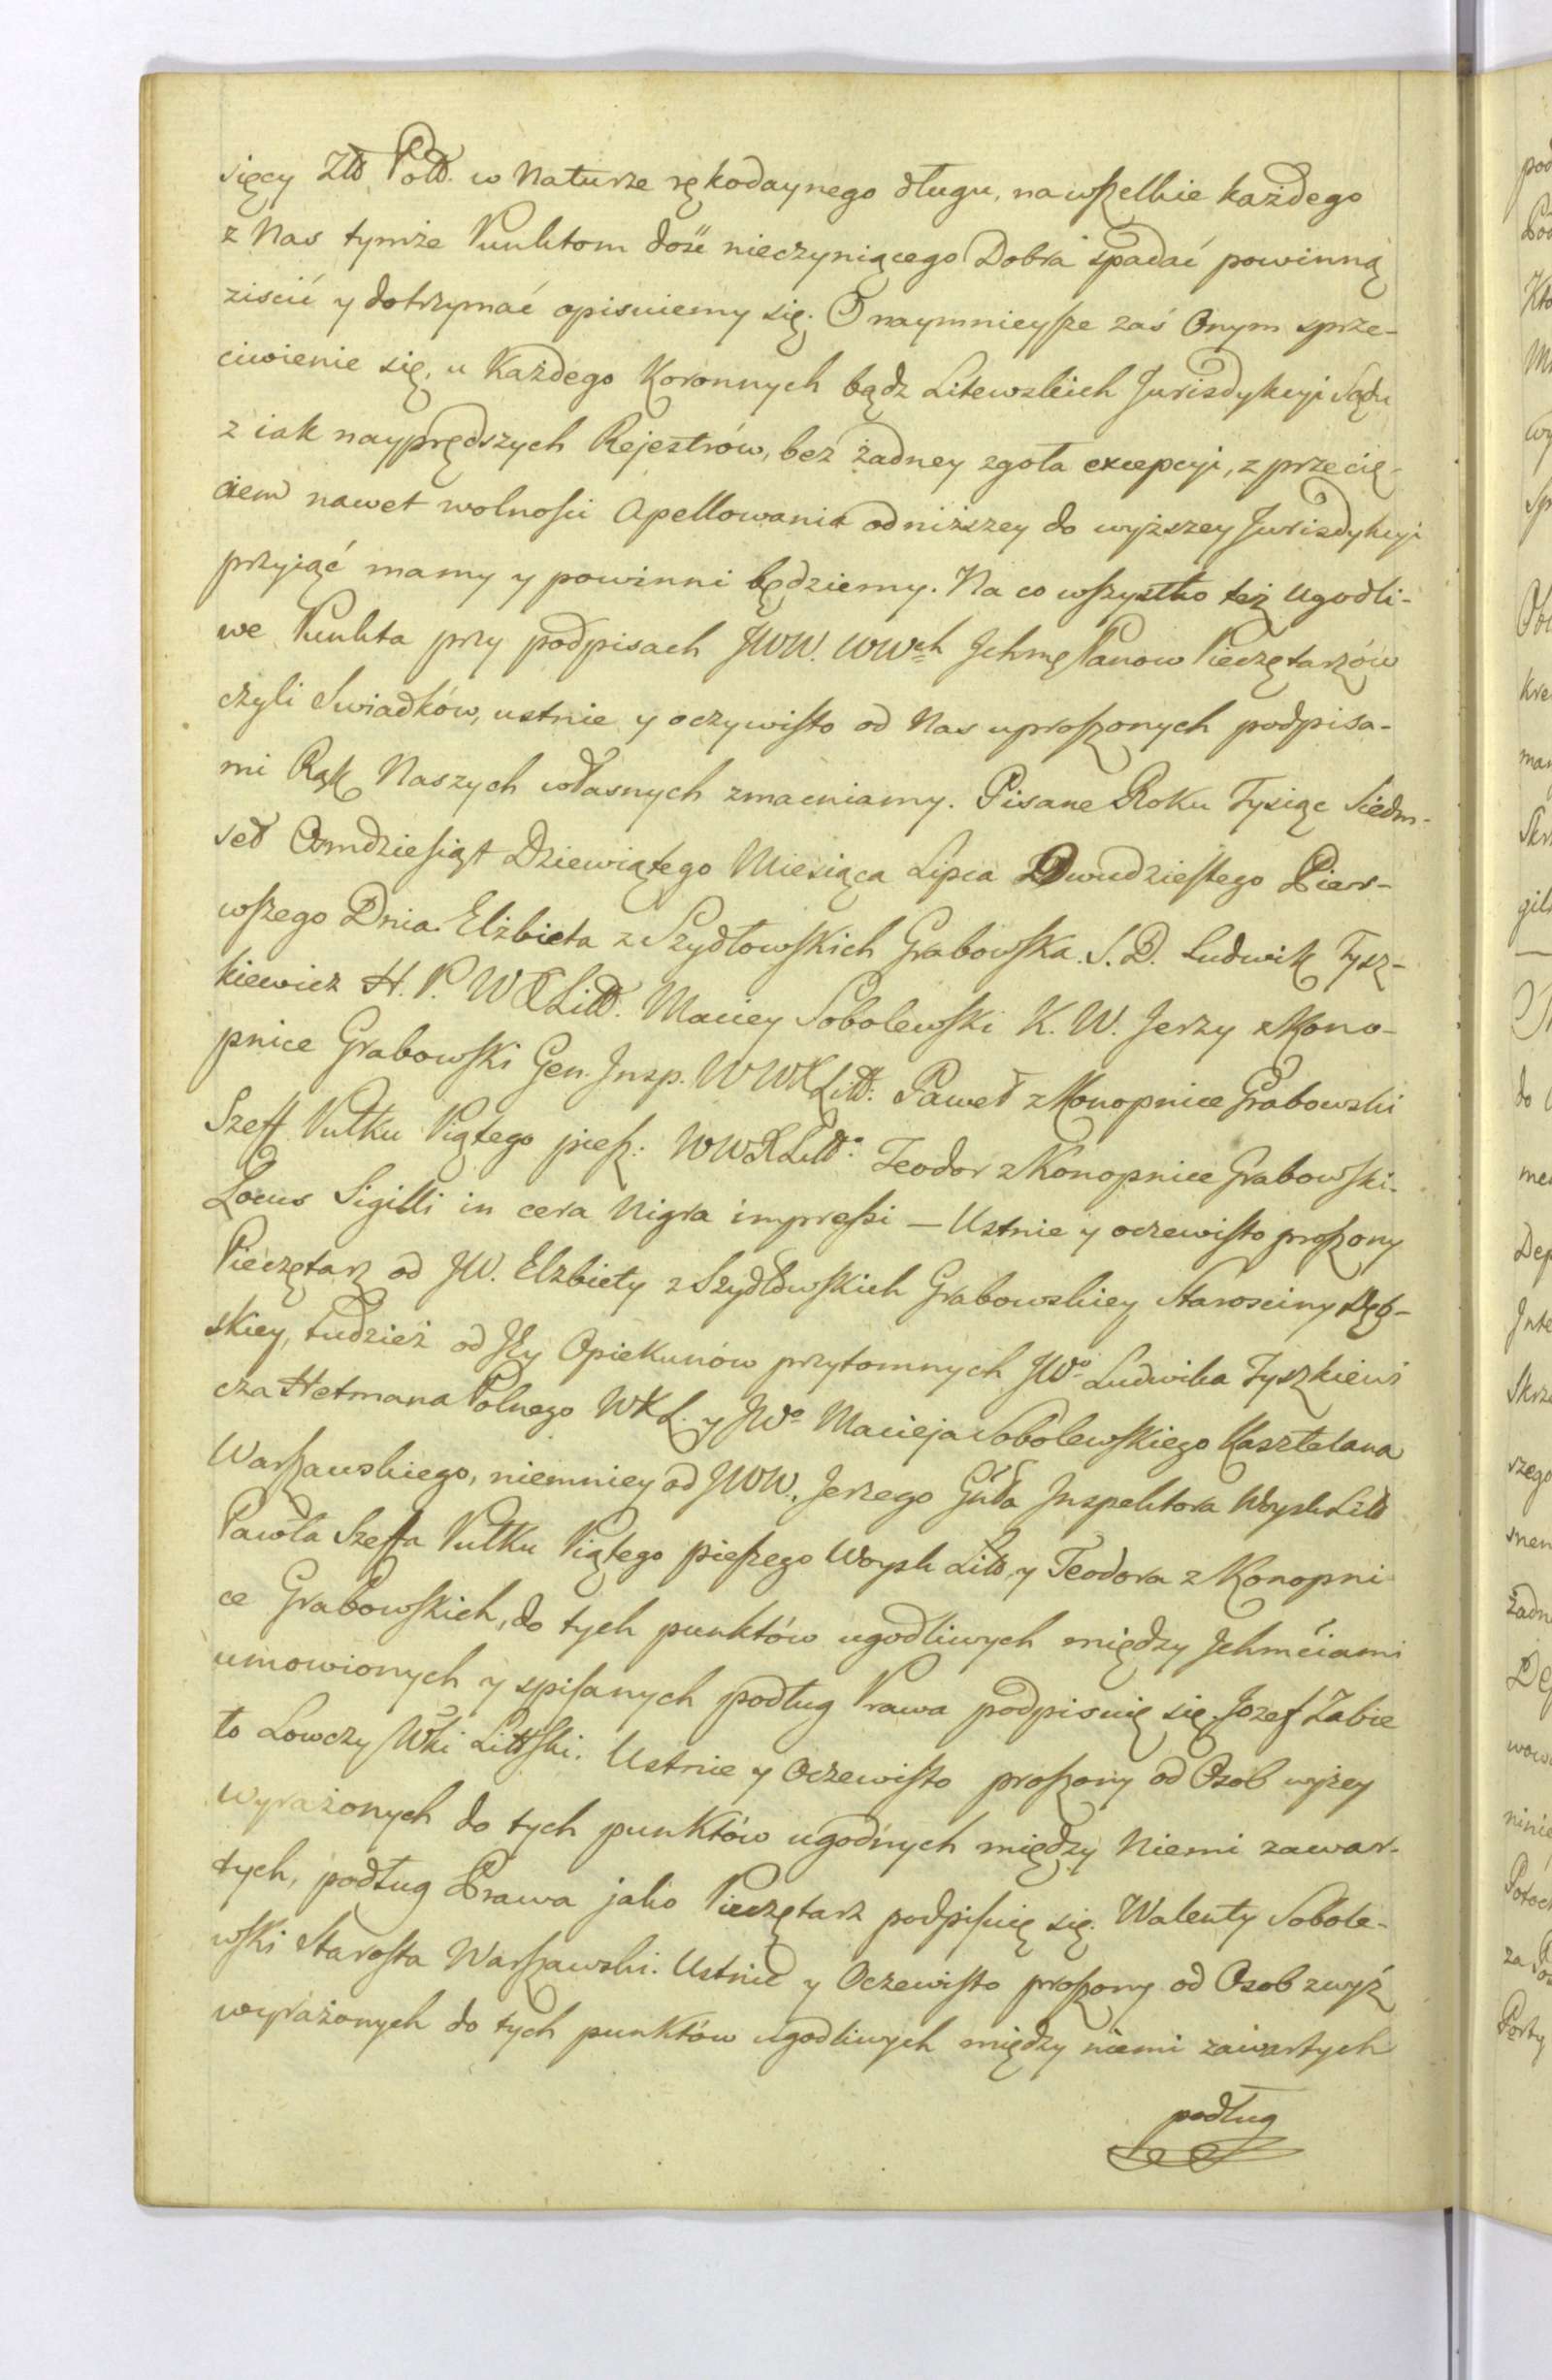 sięcy Złł Poll. w Naturze rękodaynego długu, na wszelkie każdego
z Nas tymże Punktom dość nieczyniącego Dobra spadać powinną
ziscić y dotrzymać opisuiemy się. O naymnieysze zaś Onym sprze-
ciwienie się, u Każdego Koronnych bądz Litewskich Jurisdykcyi Sądu
z iak nayprędszych Rejestrów, bez żadney zgoła excepcyi, z przecię-
ciem nawet wolności Apellowania od niższey do wyższey Jurisdykcyi
przyiąć mamy y powinni będziemy. Na co wszystko też Ugodli-
we Punkta przy podpisach JWW. WWch Jchmę Panow Pieczętarzów
czyli Swiadków, ustnie y oczywisto od Nas uproszonych podpisa-
mi Rąk Naszych własnych zmacniamy. Pisane Roku Tysiąc Siedm-
set Osmdziesiąt Dziewiątego Miesiąca Lipca Dwudziestego Pierw-
wszego Dnia. Elżbieta z Szydłowskich Grabowska. S. D. Ludwik Tysz-
kiewicz H. P. W X Litt. Maciey Sobolewski K. W. Jerzy z Kono-
pnice Grabowski Gen. Jnsp. WWXLitt: Paweł z Konopnice Grabowski
Szeff Pułku Piątego piesz: WWXLitt: Teodor z Konopnice Grabowski.
Locus Sigilli in cera Nigra impressi — Ustnie y oczewisto proszony
Pieczętarz od JW. Elzbiety z Szydłowskich Grabowskiey Starosciny Dęb-
skiey, tudzież od Jey Opiekunów przytomnych JWo Ludwika Tyszkiewi
cza Hetmana Polnego WXL. y JWo Macieja Sobolewskiego Kasztelana
Warszawskiego, niemniey od JWW. Jerzego Gńła Jnspektora Woysk Litt
Pawła Szeffa Pułku Piątego pieszego Woysk Litt, y Teodora z Konopni
ce Grabowskich, do tych punktów ugodliwych między Jchmściami
umowionych y spisanych podług Prawa podpisuię się. Jozef Zabie
ło Lowczy Wki Littski. Ustnie y Oczewisto proszony od Osob wyżey
wyrażonych do tych punktów ugodnych między Niemi zawar-
tych, podług Prawa jako Pieczętarz podpisuię się. Walenty Sobole-
wski Starosta Warszawski. Ustnie y Oczewisto proszony od Osob zwyż
wyrażonych do tych punktów ugodliwych między niemi zawartych
podług